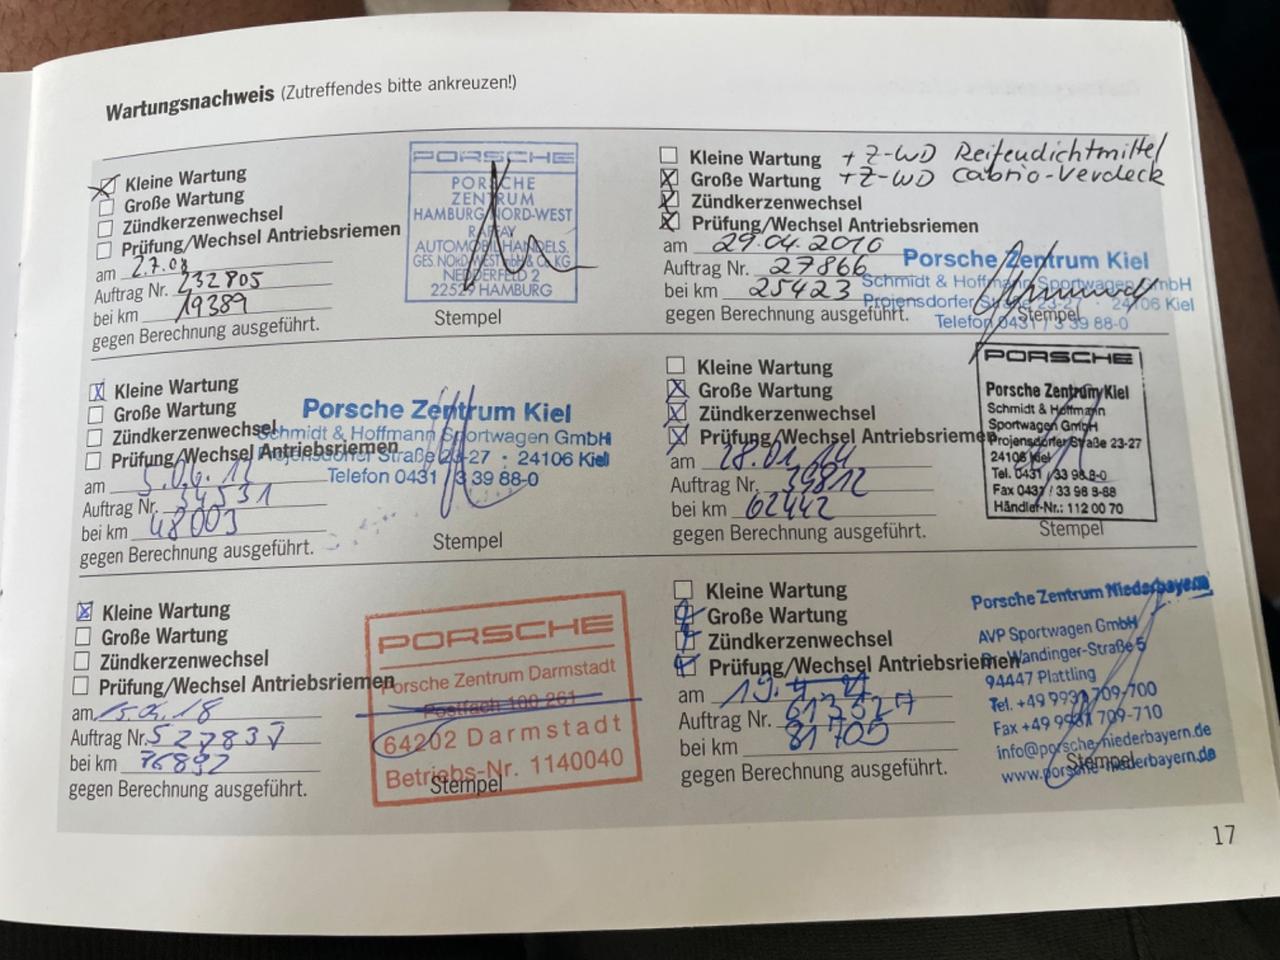 Wartungsnachweis (Zutreffendes bitte ankreuzen!)
Kleine Wartung
Große Wartung
Zündkerzenwechsel
Prüfung/Wechsel Antriebsriemen
am 2.7.08
Auftrag Nr. 232805
bei km 19389
gegen Berechnung ausgeführt.
PORSCHE
PORSCHE
ZENTRUM
HAMBURG NORD-WEST
RAFFAY
AUTOMOBILHANDELS.
GES. NORD-WEST mbH & CO. KG
NEDDERFELD 2
22529 HAMBURG
Stempel
Kleine Wartung + Z-WD Reifendichtmittel
Große Wartung + Z-WD Cabrio-Verdeck
Zündkerzenwechsel
Prüfung/Wechsel Antriebsriemen
am 29.04.2010
Auftrag Nr. 27866
bei km 25423
gegen Berechnung ausgeführt.
Porsche Zentrum Kiel
Schmidt & Hoffmann Sportwagen GmbH
Projensdorfer Straße 23-27 24106 Kiel
Telefon 0431 / 3 39 88-0
Stempel
Kleine Wartung
Große Wartung
Zündkerzenwechsel
Prüfung/Wechsel Antriebsriemen
am 5.06.12
Auftrag Nr. 34531
bei km 48003
gegen Berechnung ausgeführt.
Porsche Zentrum Kiel
Schmidt & Hoffmann Sportwagen GmbH
Projensdorfer Straße 23-27 · 24106 Kiel
Telefon 0431 / 3 39 88-0
Stempel
Kleine Wartung
Große Wartung
Zündkerzenwechsel
Prüfung/Wechsel Antriebsriemen
am 28.01.14
Auftrag Nr. 39812
bei km 62442
gegen Berechnung ausgeführt.
PORSCHE
Porsche Zentrum Kiel
Schmidt & Hoffmann
Sportwagen GmbH
Projensdorfer Straße 23-27
24106 Kiel
Tel. 0431 / 33 98 8-0
Fax 0431 / 33 98 8-88
Händler-Nr.: 112 00 70
Stempel
Kleine Wartung
Große Wartung
Zündkerzenwechsel
Prüfung/Wechsel Antriebsriemen
am
Auftrag Nr.
bei km 76892
gegen Berechnung ausgeführt.
PORSCHE
Porsche Zentrum Darmstadt
Postfach 100 261
64202 Darmstadt
Betriebs-Nr. 1140040
Stempel
Kleine Wartung
Große Wartung
Zündkerzenwechsel
Prüfung/Wechsel Antriebsriemen
am
Auftrag Nr.
bei km 81705
gegen Berechnung ausgeführt.
Porsche Zentrum Niederbayern
AVP Sportwagen GmbH
Wandinger-Straße 5
94447 Plattling
Tel. +49 9931 709-700
Fax +49 9931 709-710
info@porsche-niederbayern.de
www.porsche-niederbayern.de
Stempel
17